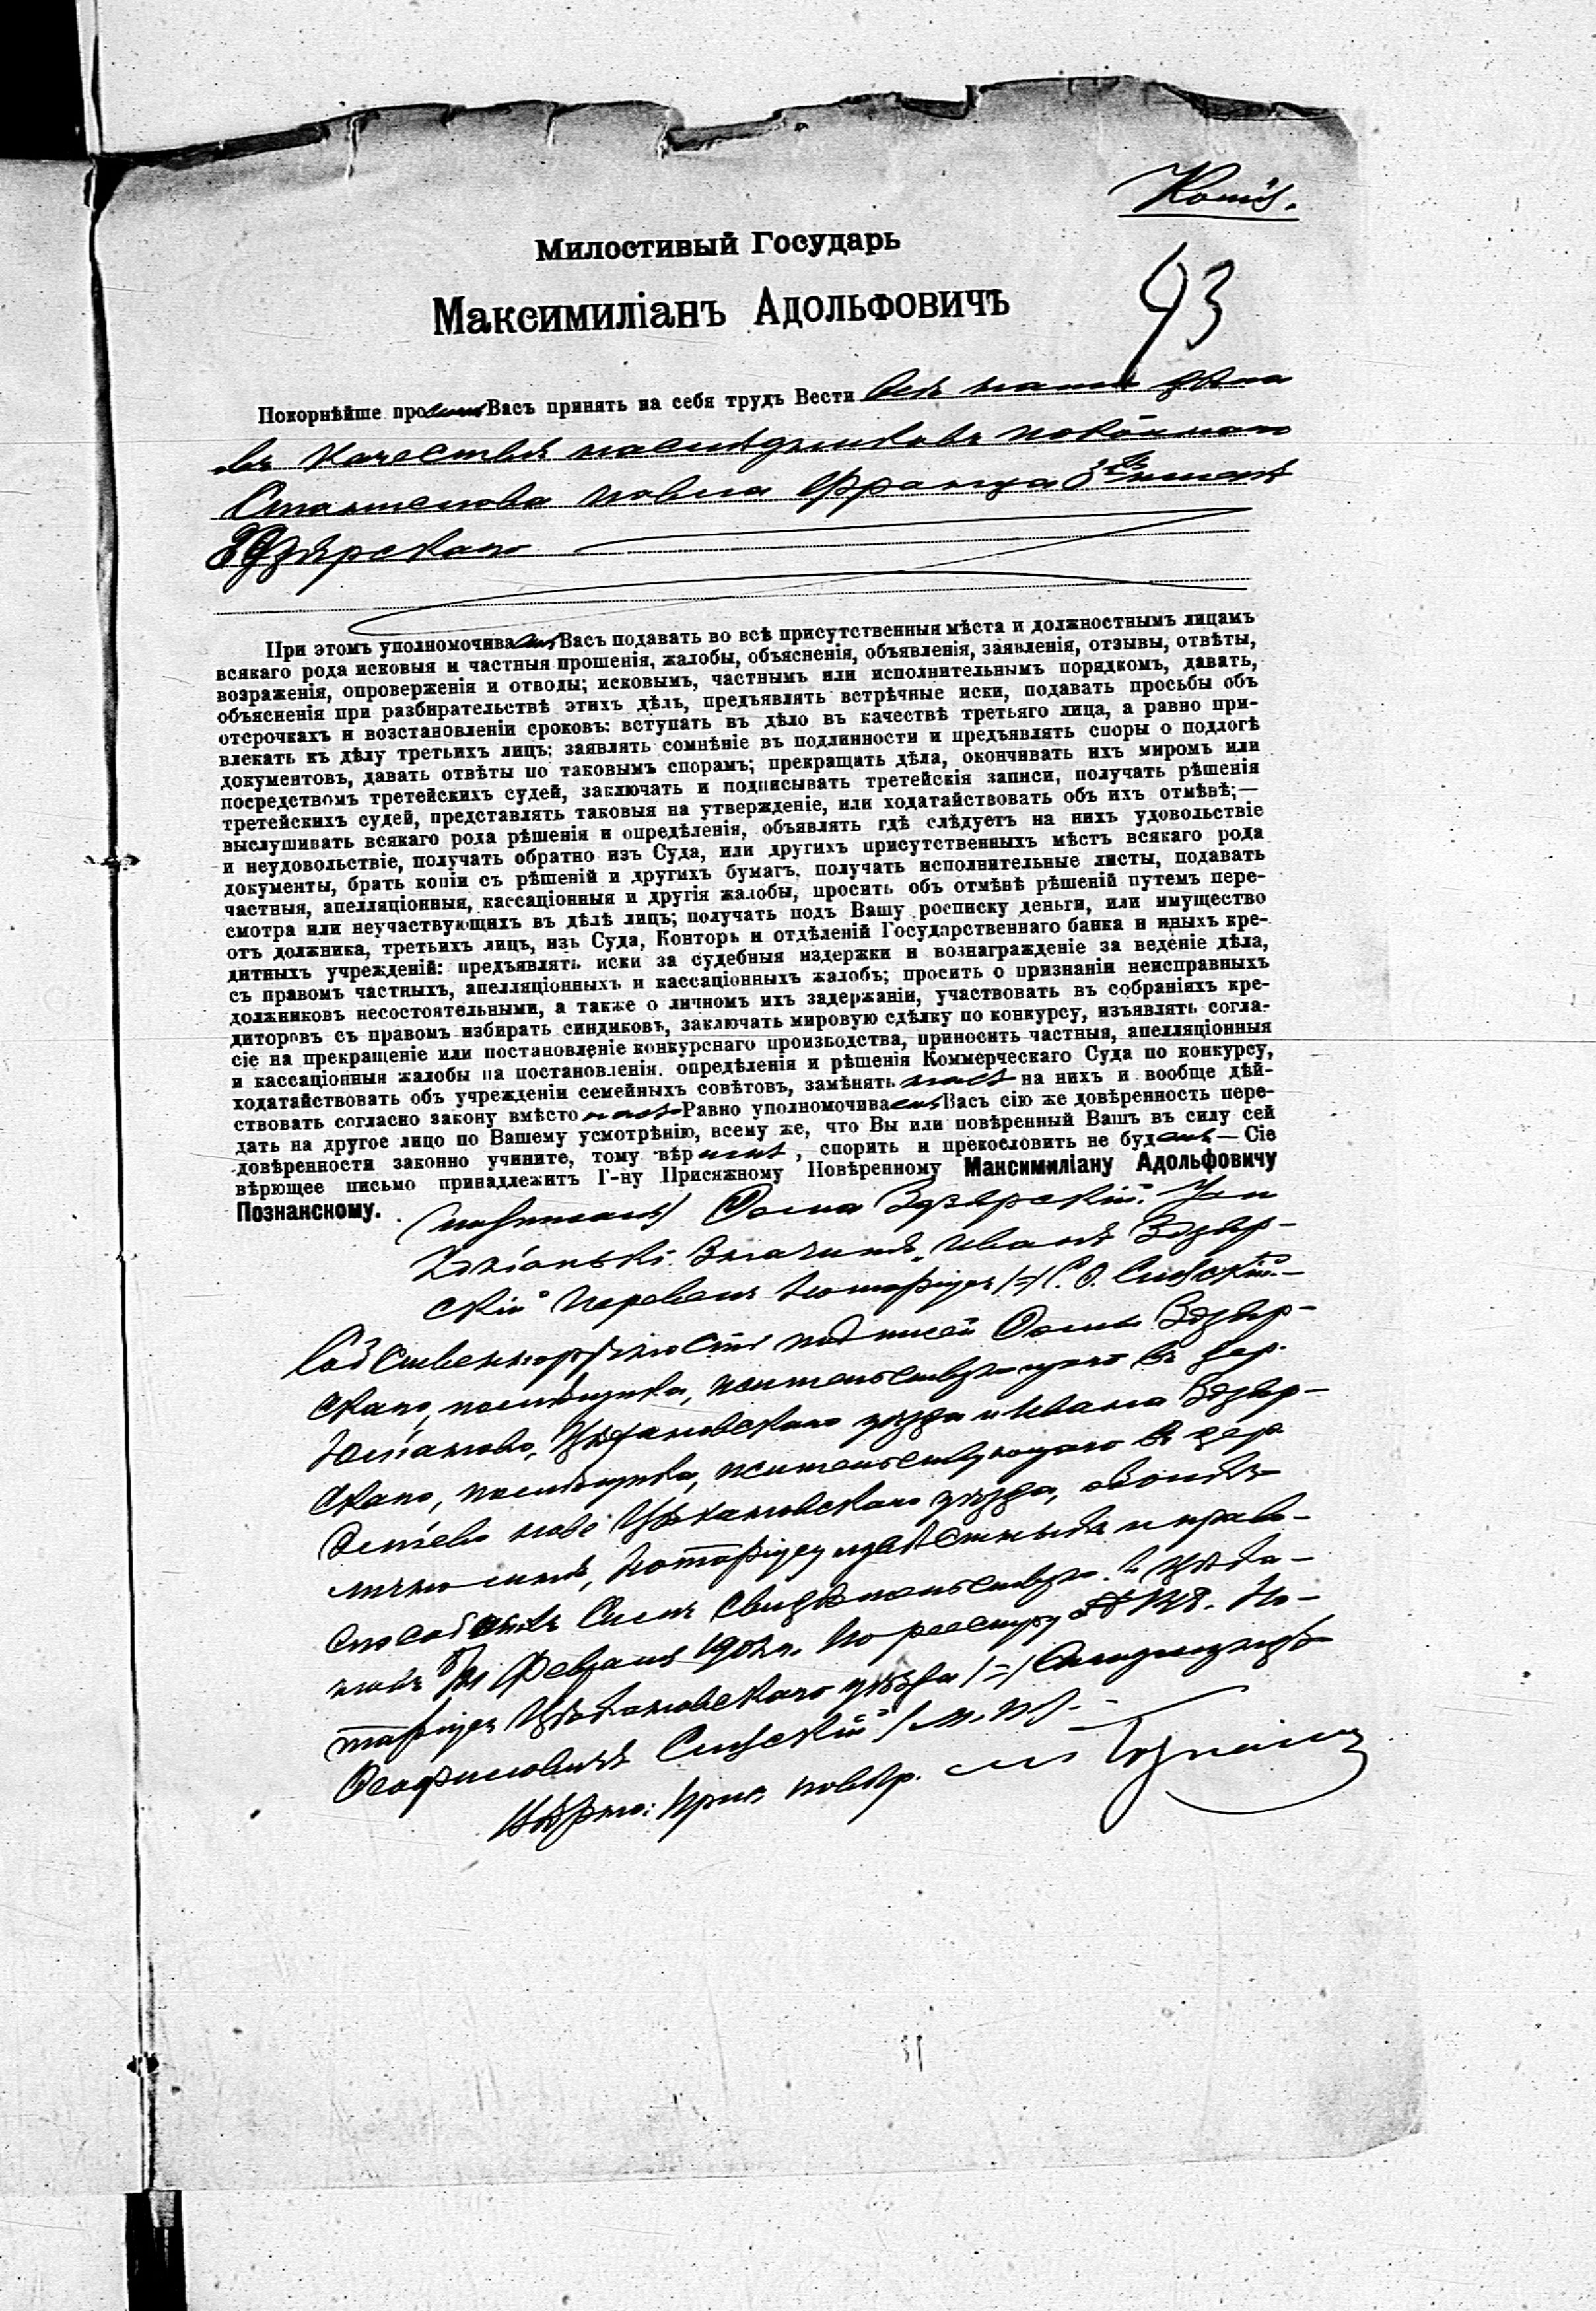 Копія.
93
Милостивый Государь
Максимиліанъ Адольфовичъ
Покорнѣйше просимъ Васъ принять на себя трудъ Вести всѣ наши дѣла
въ качествѣ наслѣдниковъ покойнаго
Франца
Здзѣрскаго
При этомъ уполномочиваемъ Васъ подавать во всѣ присутственныя мѣста и должностнымъ лицамъ
всякаго рода исковыя и частныя прошенія, жалобы, объясненія, объявленія, заявленія, отзывы, отвѣты,
возраженія, опроверженія и отводы; исковымъ, частнымъ или исполнительнымъ порядкомъ, давать,
объясненія при разбирательствѣ этихъ дѣлъ, предъявлять встрѣчные иски, подавать просьбы объ
отсрочкахъ и возстановленіи сроковъ: вступать въ дѣло въ качествѣ третьяго лица, а равно при-
влекать къ дѣлу третьихъ лицъ; заявлять сомнѣніе въ подлинности и предъявлять споры о подлогѣ
документовъ, давать отвѣты по таковымъ спорамъ; прекращать дѣла, окончивать ихъ миромъ или
посредствомъ третейскихъ судей, заключать и подписывать третейскія записи, получать рѣшенія
третейскихъ судей, представлять таковыя на утвержденіе, или ходатайствовать объ ихъ отмѣнѣ;—
выслушивать всякаго рода рѣшенія и опредѣленія, объявлять гдѣ слѣдуетъ на нихъ удовольствіе
и неудовольствіе, получать обратно изъ Суда, или другихъ присутственныхъ мѣстъ всякаго рода
документы, брать копіи съ рѣшеній и другихъ бумагъ. получать исполнительные листы, подавать
частныя, апелляціонныя, кассаціонныя и другія жалобы, просить объ отмѣнѣ рѣшеній путемъ пере-
смотра или неучаствующихъ въ дѣлѣ лицъ; получать подъ Вашу росписку деньги, или имущество
отъ должника, третьихъ лицъ, изъ Суда, Конторъ и отдѣленій Государственнаго банка и иныхъ кре-
дитныхъ учрежденій: предъявлять иски за судебныя издержки и вознагражденіе за веденіе дѣла,
съ правомъ частныхъ, апелляціонныхъ и кассаціонныхъ жалобъ; просить о признаніи неисправныхъ
должниковъ несостоятельными, а также о личномъ ихъ задержаніи, участвовать въ собраніяхъ кре-
диторовъ съ правомъ избирать синдиковъ, заключать мировую сдѣлку по конкурсу, изъявлять согла-
сіе на прекращеніе или постановленіе конкурснаго производства, приносить частныя, апелляціонныя
и кассаціонныя жалобы на постановленія. опредѣленія и рѣшенія Коммерческаго Суда по конкурсу,
ходатайствовать объ учрежденіи семейныхъ совѣтовъ, замѣнять насъ на нихъ и вообще дѣй-
ствовать согласно закону вмѣсто насъ Равно уполномочиваемъ Васъ сію же довѣренность пере-
дать на другое лицо по Вашему усмотрѣнію, всему же, что Вы или повѣренный Вашъ въ силу сей
довѣренности законно учините, тому вѣримъ, спорить и прекословить не будемъ — Сіе
вѣрющее письмо принадлежитъ Г-ну Присяжному Повѣренному Максимиліану Адольфовичу
Познанскому. (подписали) Ѳома Здзѣрскій. Jan
Zdziarski. Значитъ „Иванъ Здзѣр-
скій" Перевелъ Нотаріусъ /-/ С. Ѳ.
Собственноручность подписей Ѳомы Здзѣр-
скаго, помѣщика, жительствующаго въ дер.
Цѣхановскаго уѣзда и Ивана Здзѣр-
скаго, помѣщика, жительствующаго въ дер.
Цѣхановскаго уѣзда,
лично мнѣ, Нотаріусу извѣстныхъ и право-
способныхъ симъ свидѣтельствую. Г. Цѣха-
новъ Февраля 1902 г. По реестру № Но-
таріусъ Цѣхановскаго уѣзда /-/
Ѳеофиловичъ /М. П./.-
Вѣрно: Прис. повѣр.